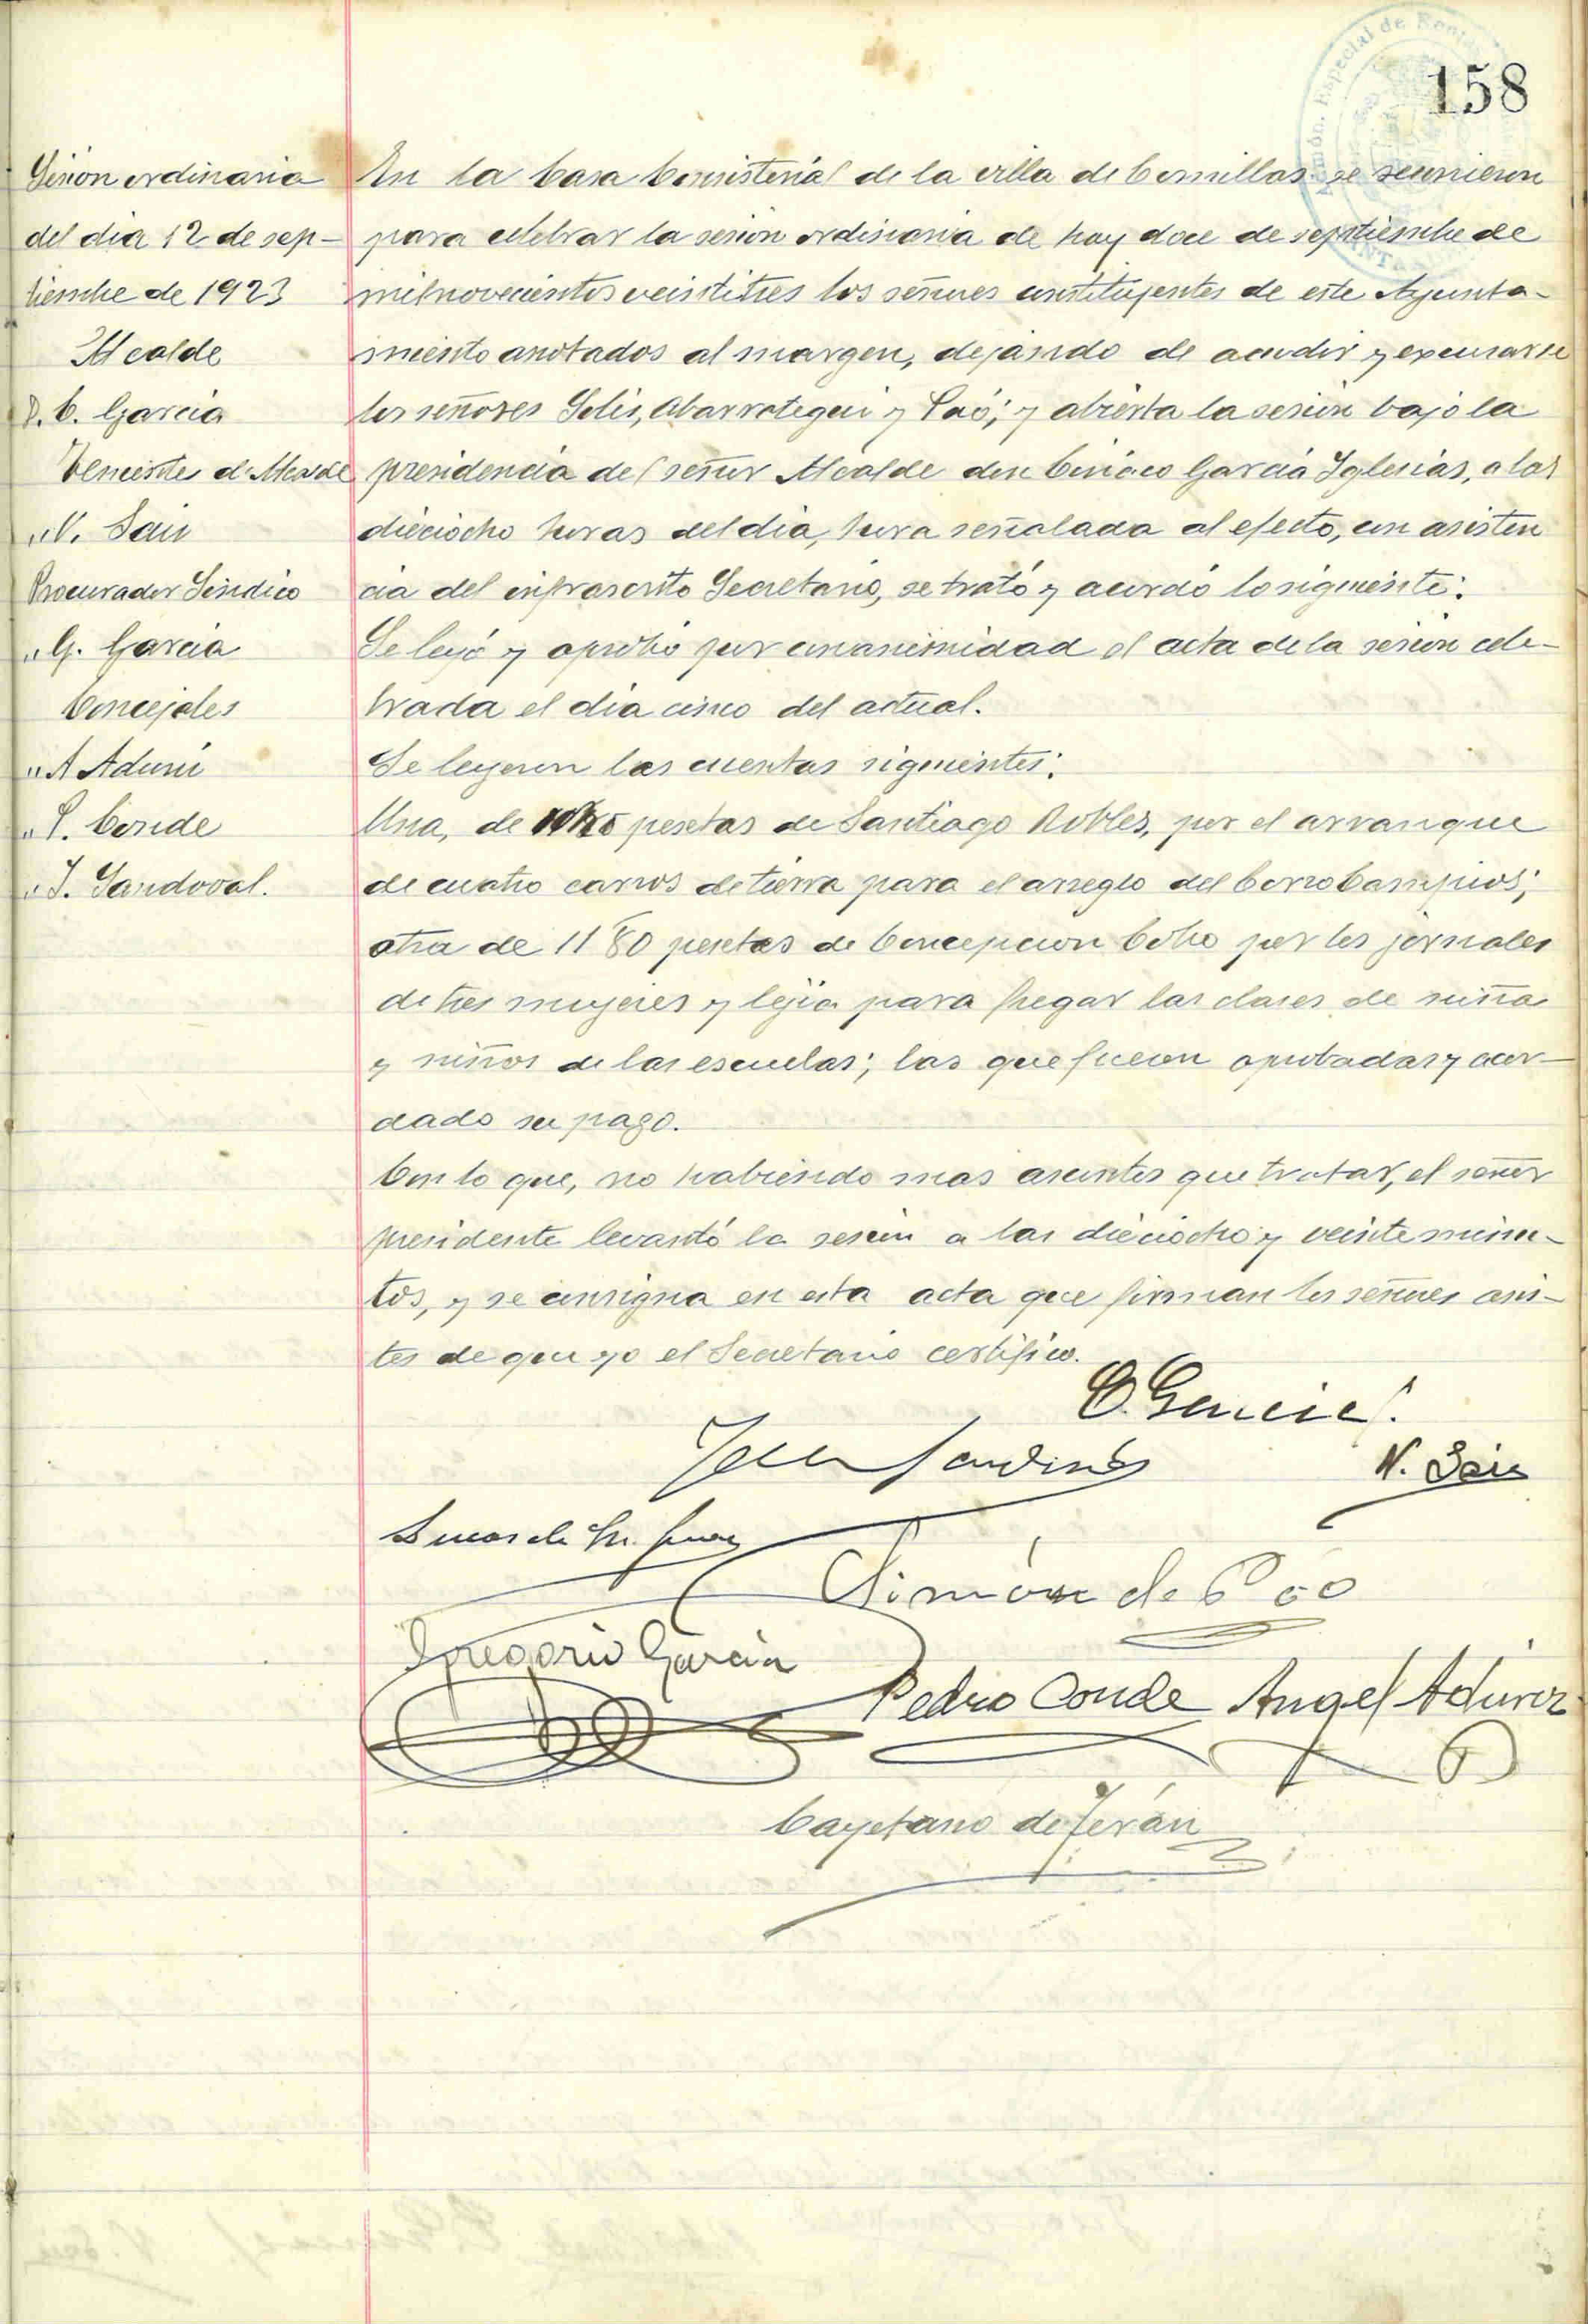 158
Sesion ordinaria
del dia 12 de sep-
tiembre de 1923
Alcalde
D. C. Garcia
Teniente de Alcalde
" N. Saiz
Procurador Sindico
" G. Garcia
Concejales
" A Aduriz
" P. Conde
" J. Sandoval.
En la Casa Consistorial de la villa de Comillas se reunieron
para celebrar la sesion ordinaria de hoy doce de septiembre de
milnovecientos veintitres los señores constituyentes de este Ayunta-
miento anotados al margen, dejando de acudir y excusarse
los señores Solis, Abarrategui y Póo; y abierta la sesion bajo la
presidencia del señor Alcalde don Ciriaco Garcia Iglesias, a las
dieciocho horas del dia, hora señalada al efecto, con asisten
cia del infrascrito Secretario, se trató y acordó lo siguiente:
Se leyó y aprobó por unanimidad el acta de la sesion cele-
brada el dia cinco del actual.
Se leyeron las cuentas siguientes:
Una, de pesetas de Santiago Robles, por el arranque
de cuatro carros de tierra para el arreglo del Corro Campios;
otra de 11 80 pesetas de Concepcion Cobo por los jornales
de tres mujeres y lejia para fregar las clases de niñas
y niños de las escuelas; las que fueron aprobadas y acor-
dado su pago.
Con lo que, no habiendo mas asuntos que tratar, el señor
presidente levantó la sesion a las dieciocho y veinte minu-
tos, y se consigna en esta acta que firman los señores asis-
tes de que yo el Secretario certifico.
C. Garcia
N. Saiz
Simón de Póo
Gregorio Garcia
Pedro Conde Angel Aduriz
Cayetano de Terán